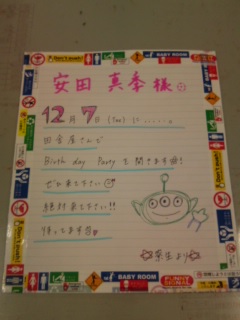 安田 真季 様
12月 7日 (Tue) に、、、、、。
田舎屋さんで
Birth day Party を開きます
ぜひ来て下さい
絶対来て下さい!!
待ってます
菜生より
BABY ROOM
BABY ROOM